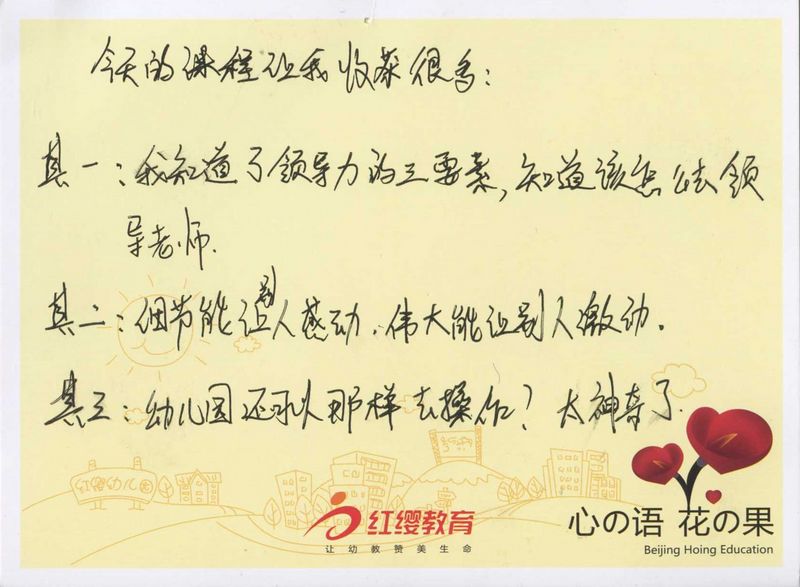 今天的课程让我收获很多：
其一：我知道了领导力的三要素，知道该怎么去领
导老师.
其二：细节能让别人感动.伟大能让别人激动。
其三：幼儿园还可以那样去操作？太神奇了.
红缨幼儿园
红缨教育
让幼教赞美生命
心の语 花の果
Beijing Hoing Education